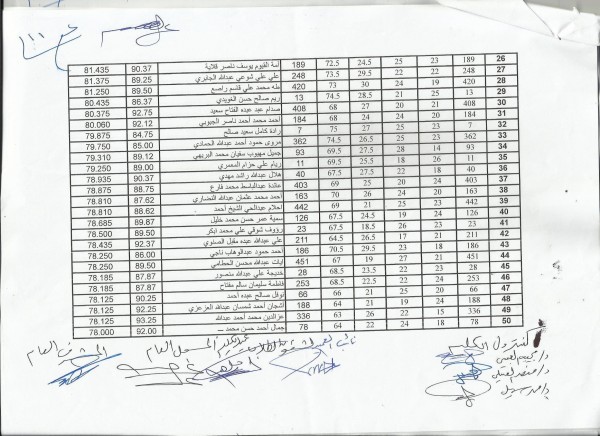 26 189 23 25 24.5 72.5 189 أمة القيوم يوسف ناصر قلاية 90.37 81.435
27 248 22 22 29.5 73.5 248 علي علي شوعي عبدالله الجابري 89.25 81.375
28 420 19 24 30 73 420 طه محمد علي قاسم راصع 89.50 81.250
29 13 25 21 28.5 74.5 13 ريم صالح حسن النويدي 86.37 80.435
30 408 21 20 27 68 408 صدام عبد عبده الفتاح سعيد 92.75 80.375
31 184 20 24 24 68 184 أحمد محمد أحمد ناصر الجبوبي 92.12 80.060
32 7 23 25 27 75 7 رادة كامل سعيد صالح 84.75 79.875
33 362 23 25 26.5 74.5 362 مروى حمود أحمد عبدالله الحمادي 85.00 79.750
34 93 14 28 27.5 69.5 93 جميل مهيوب سفيان محمد البريهي 89.12 79.310
35 11 26 18 25.5 69.5 11 ريام علي حزام المعمري 89.00 79.250
36 40 18 22 27.5 67.5 40 هلال عبدالله راشد مهدي 90.37 78.935
37 403 24 20 25 69 403 عائدة عبدالباسط محمد فارع 88.75 78.875
38 163 20 24 26 70 163 أحمد محمد عثمان عبدالله النصاري 87.62 78.810
39 442 23 25 21 69 442 أحلام عبدالحي الشيخ أحمد 88.62 78.810
40 126 24 19 24.5 67.5 126 سمية عمر حسن محمد خليل 89.87 78.685
41 23 23 26 18.5 67.5 23 رؤوف شوقي علي محمد ابكر 89.50 78.500
42 211 21 17 26.5 64.5 211 علي عبدالله عبده مقبل الصلوي 92.37 78.435
43 186 18 23 29.5 70.5 186 أحمد حمود عبدالوهاب ناجي 86.00 78.250
44 451 24 24 19 67 451 آيات عبدالله محسن الحطامي 89.50 78.250
45 28 23 22 23.5 68.5 28 خديجة علي عبدالله منصور 87.87 78.185
46 253 24 22 22.5 68.5 253 فاطمة سليمان سالم مفتاح 87.87 78.185
47 66 20 25 21 66 66 نوفل صالح عبده أحمد 90.25 78.125
48 188 24 19 21 64 188 أشجان أحمد شمسان عبدالله العزعزي 92.25 78.125
49 336 15 22 26 63 336 عزالدين محمد أحمد عبدالله 93.25 78.125
50 78 18 24 22 64 78 جمال أحمد حسن محمد 92.00 78.000
المشرف العام